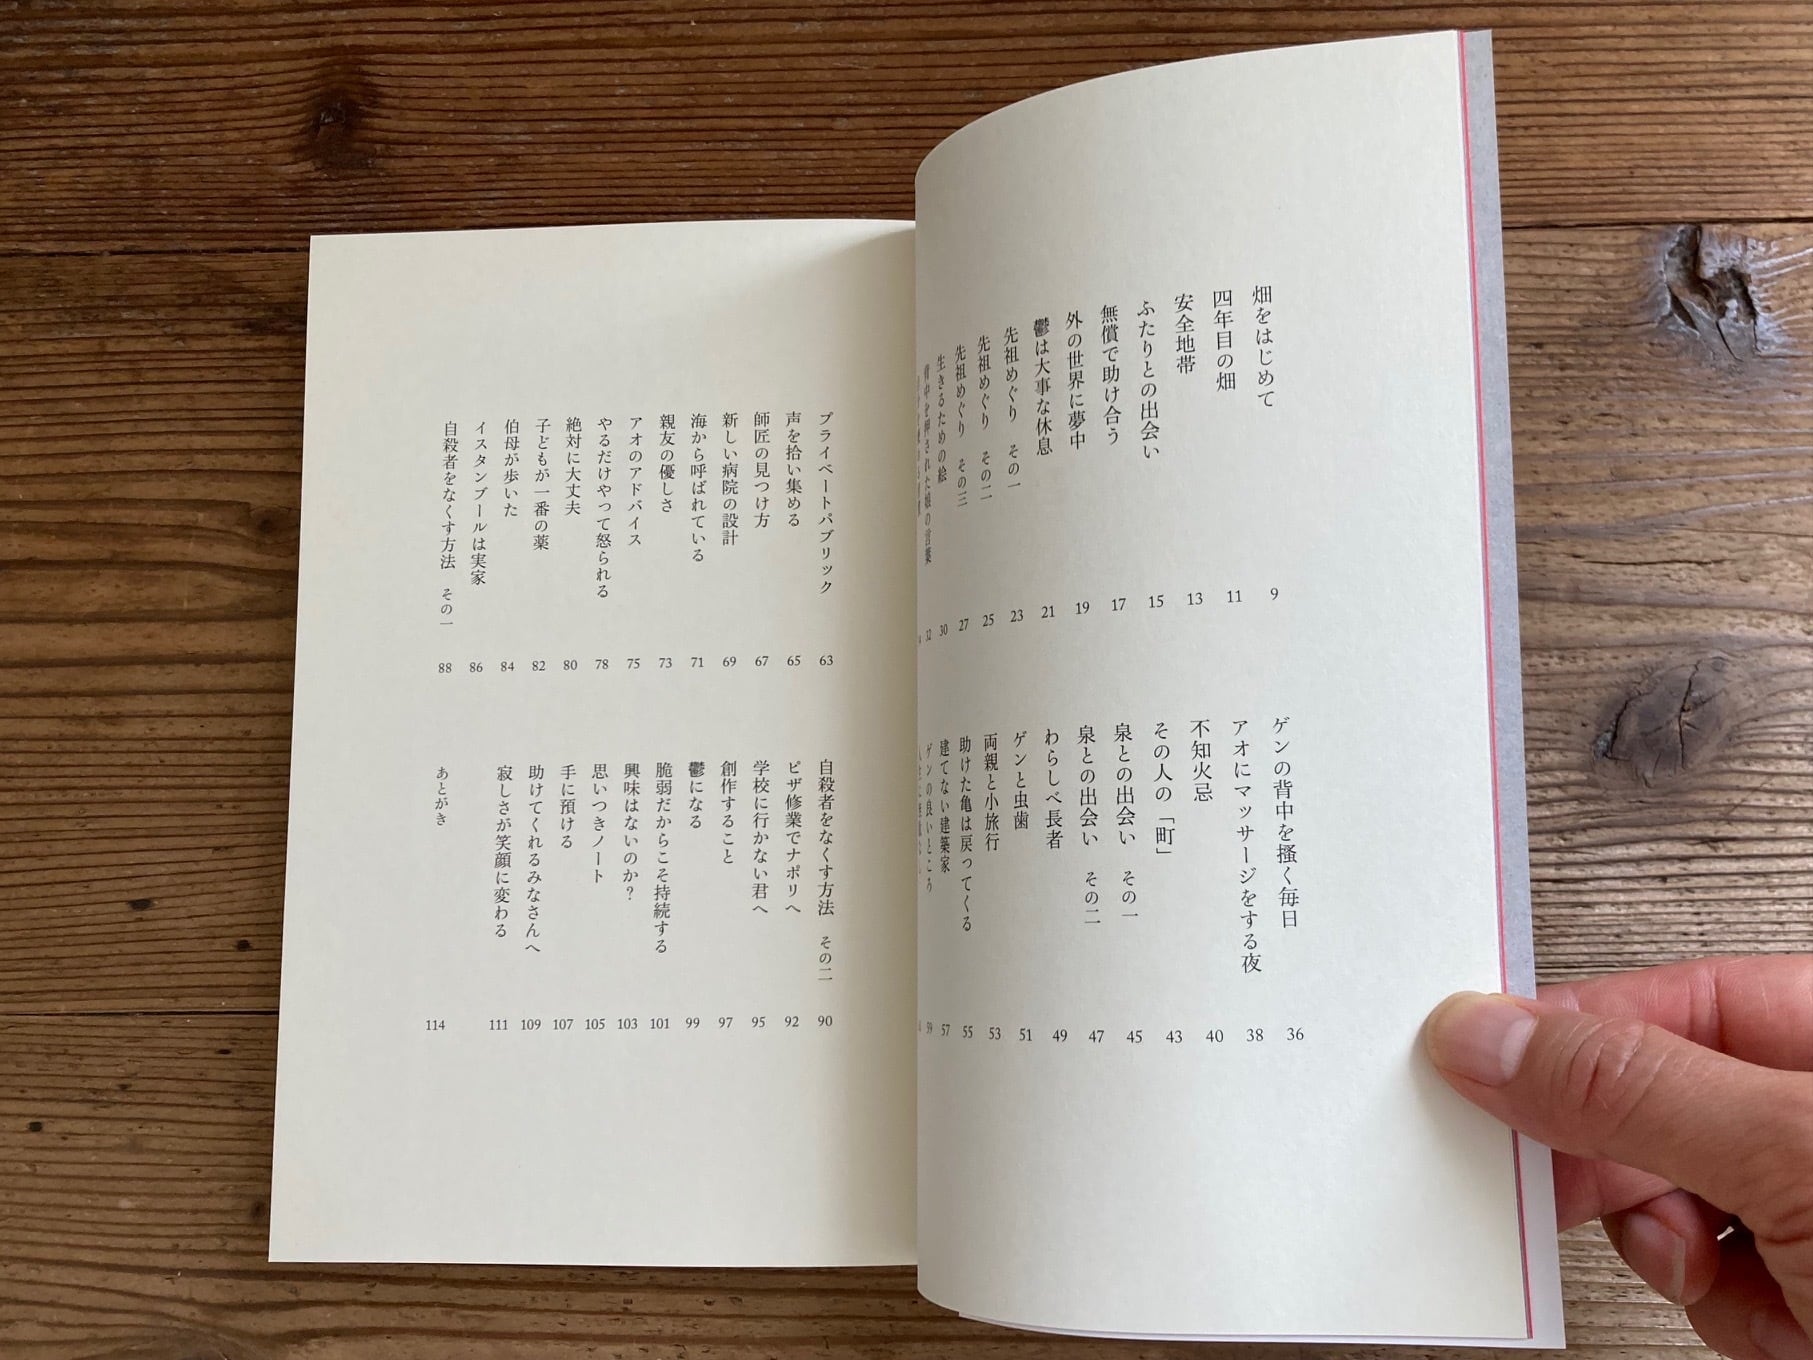 畑をはじめて 9
四年目の畑 11
安全地帯 13
ふたりとの出会い 15
無償で助け合う 17
外の世界に夢中 19
鬱は大事な休息 21
先祖めぐり その一 23
先祖めぐり その二 25
先祖めぐり その三 27
生きるための絵 30
背中を押された娘の言葉 32
ゲンの背中を掻く毎日 36
アオにマッサージをする夜 38
不知火忌 40
その人の「町」 43
泉との出会い その一 45
泉との出会い その二 47
わらしべ長者 49
ゲンと虫歯 51
両親と小旅行 53
助けた亀は戻ってくる 55
建てない建築家 57
ゲンの良いところ 59
プライベートパブリック 63
声を拾い集める 65
師匠の見つけ方 67
新しい病院の設計 69
海から呼ばれている 71
親友の優しさ 73
アオのアドバイス 75
やるだけやって怒られる 78
絶対に大丈夫 80
子どもが一番の薬 82
伯母が歩いた 84
イスタンブールは実家 86
自殺者をなくす方法 その一 88
自殺者をなくす方法 その二 90
ピザ修業でナポリへ 92
学校に行かない君へ 95
創作すること 97
鬱になる 99
脆弱だからこそ持続する 101
興味はないのか? 103
思いつきノート 105
手に預ける 107
助けてくれるみなさんへ 109
寂しさが笑顔に変わる 111
あとがき 114